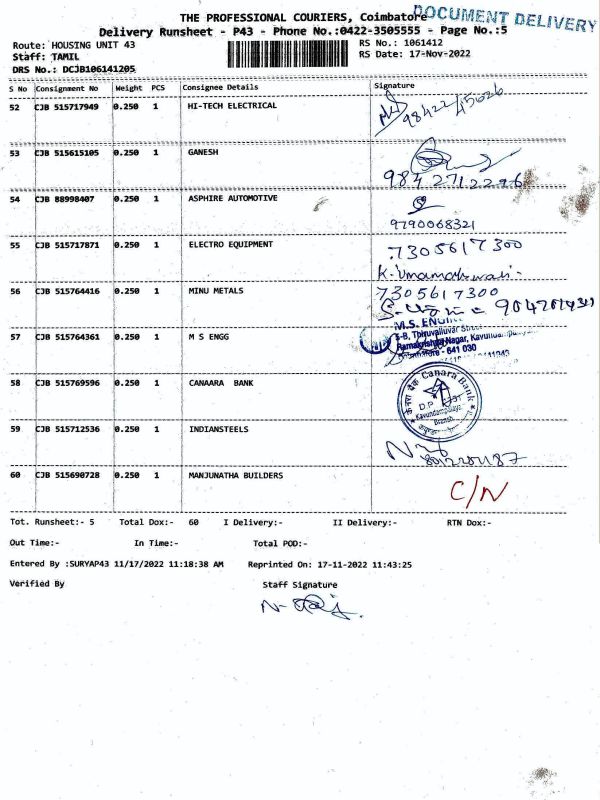 THE PROFESSIONAL COURIERS, Coimbatore
DOCUMENT DELIVERY
Delivery Runsheet - P43 - Phone No.:0422-3505555 - Page No.:5
Route: HOUSING UNIT 43
RS No.: 1061412
Staff: TAMIL
RS Date: 17-Nov-2022
DRS No.: DCJB106141205
S No Consignment No Weight PCS Consignee Details Signature
52 CJB 515717949 0.250 1 HI-TECH ELECTRICAL
98422
53 CJB 515615105 0.250 1 GANESH
54 CJB 88998407 0.250 1 ASPHIRE AUTOMOTIVE
9790068321
55 CJB 515717871 0.250 1 ELECTRO EQUIPMENT 7305617300
56 CJB 515764416 0.250 1 MINU METALS 7305617300
57 CJB 515764361 0.250 1 M S ENGG
M.S.
Thiruvalluvar
Ramakrishna Nagar,
- 641 030
58 CJB 515769596 0.250 1 CANAARA BANK
Canara Bank
Branch
59 CJB 515712536 0.250 1 INDIANSTEELS
60 CJB 515690728 0.250 1 MANJUNATHA BUILDERS C/N
Tot. Runsheet:- 5 Total Dox:- 60 I Delivery:- II Delivery:- RTN Dox:-
Out Time:- In Time:- Total POD:-
Entered By :SURYAP43 11/17/2022 11:18:38 AM Reprinted On: 17-11-2022 11:43:25
Verified By Staff Signature